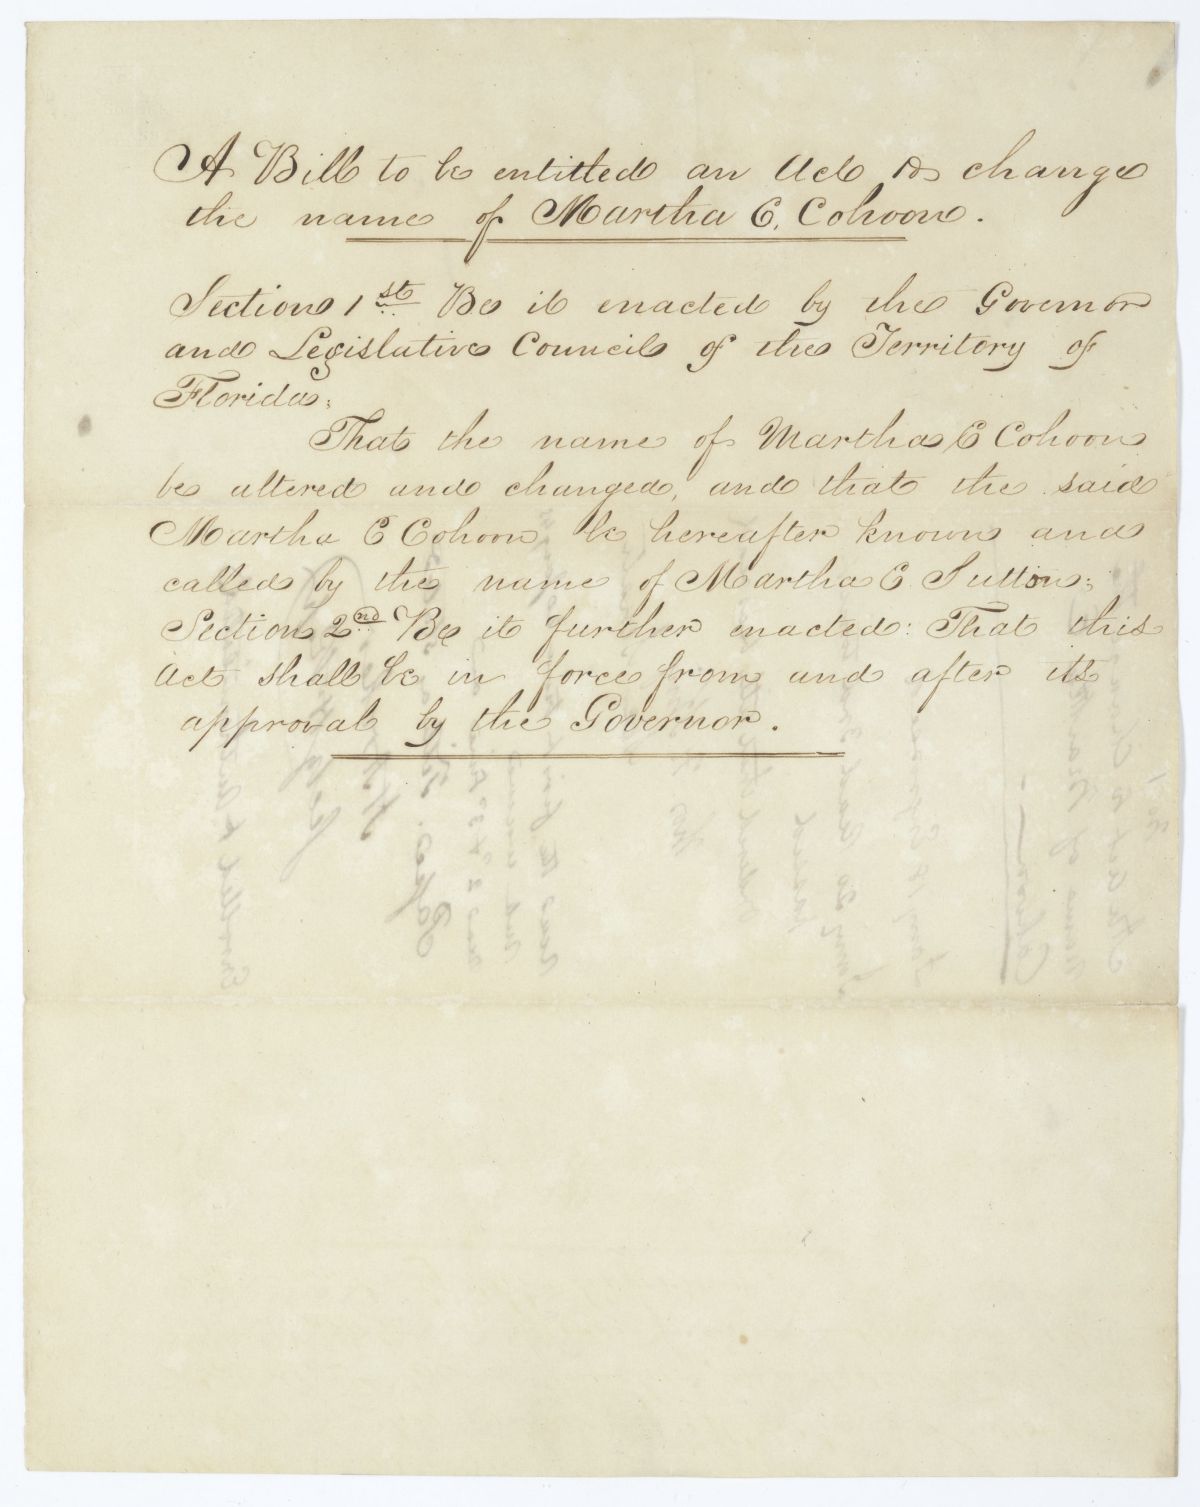 A Bill to be entitled an Act to change
the name of Martha E. Cohoon.
Section 1st Be it enacted by the Governor
and Legislative Council of the Territory of
Florida;
That the name of Martha E Cohoon
be altered and changed, and that the said
Martha E Cohoon be hereafter known and
called by the name of Martha E. Sutton;
Section 2nd Be it further enacted: That this
Act shall be in force from and after its
approval by the Governor.